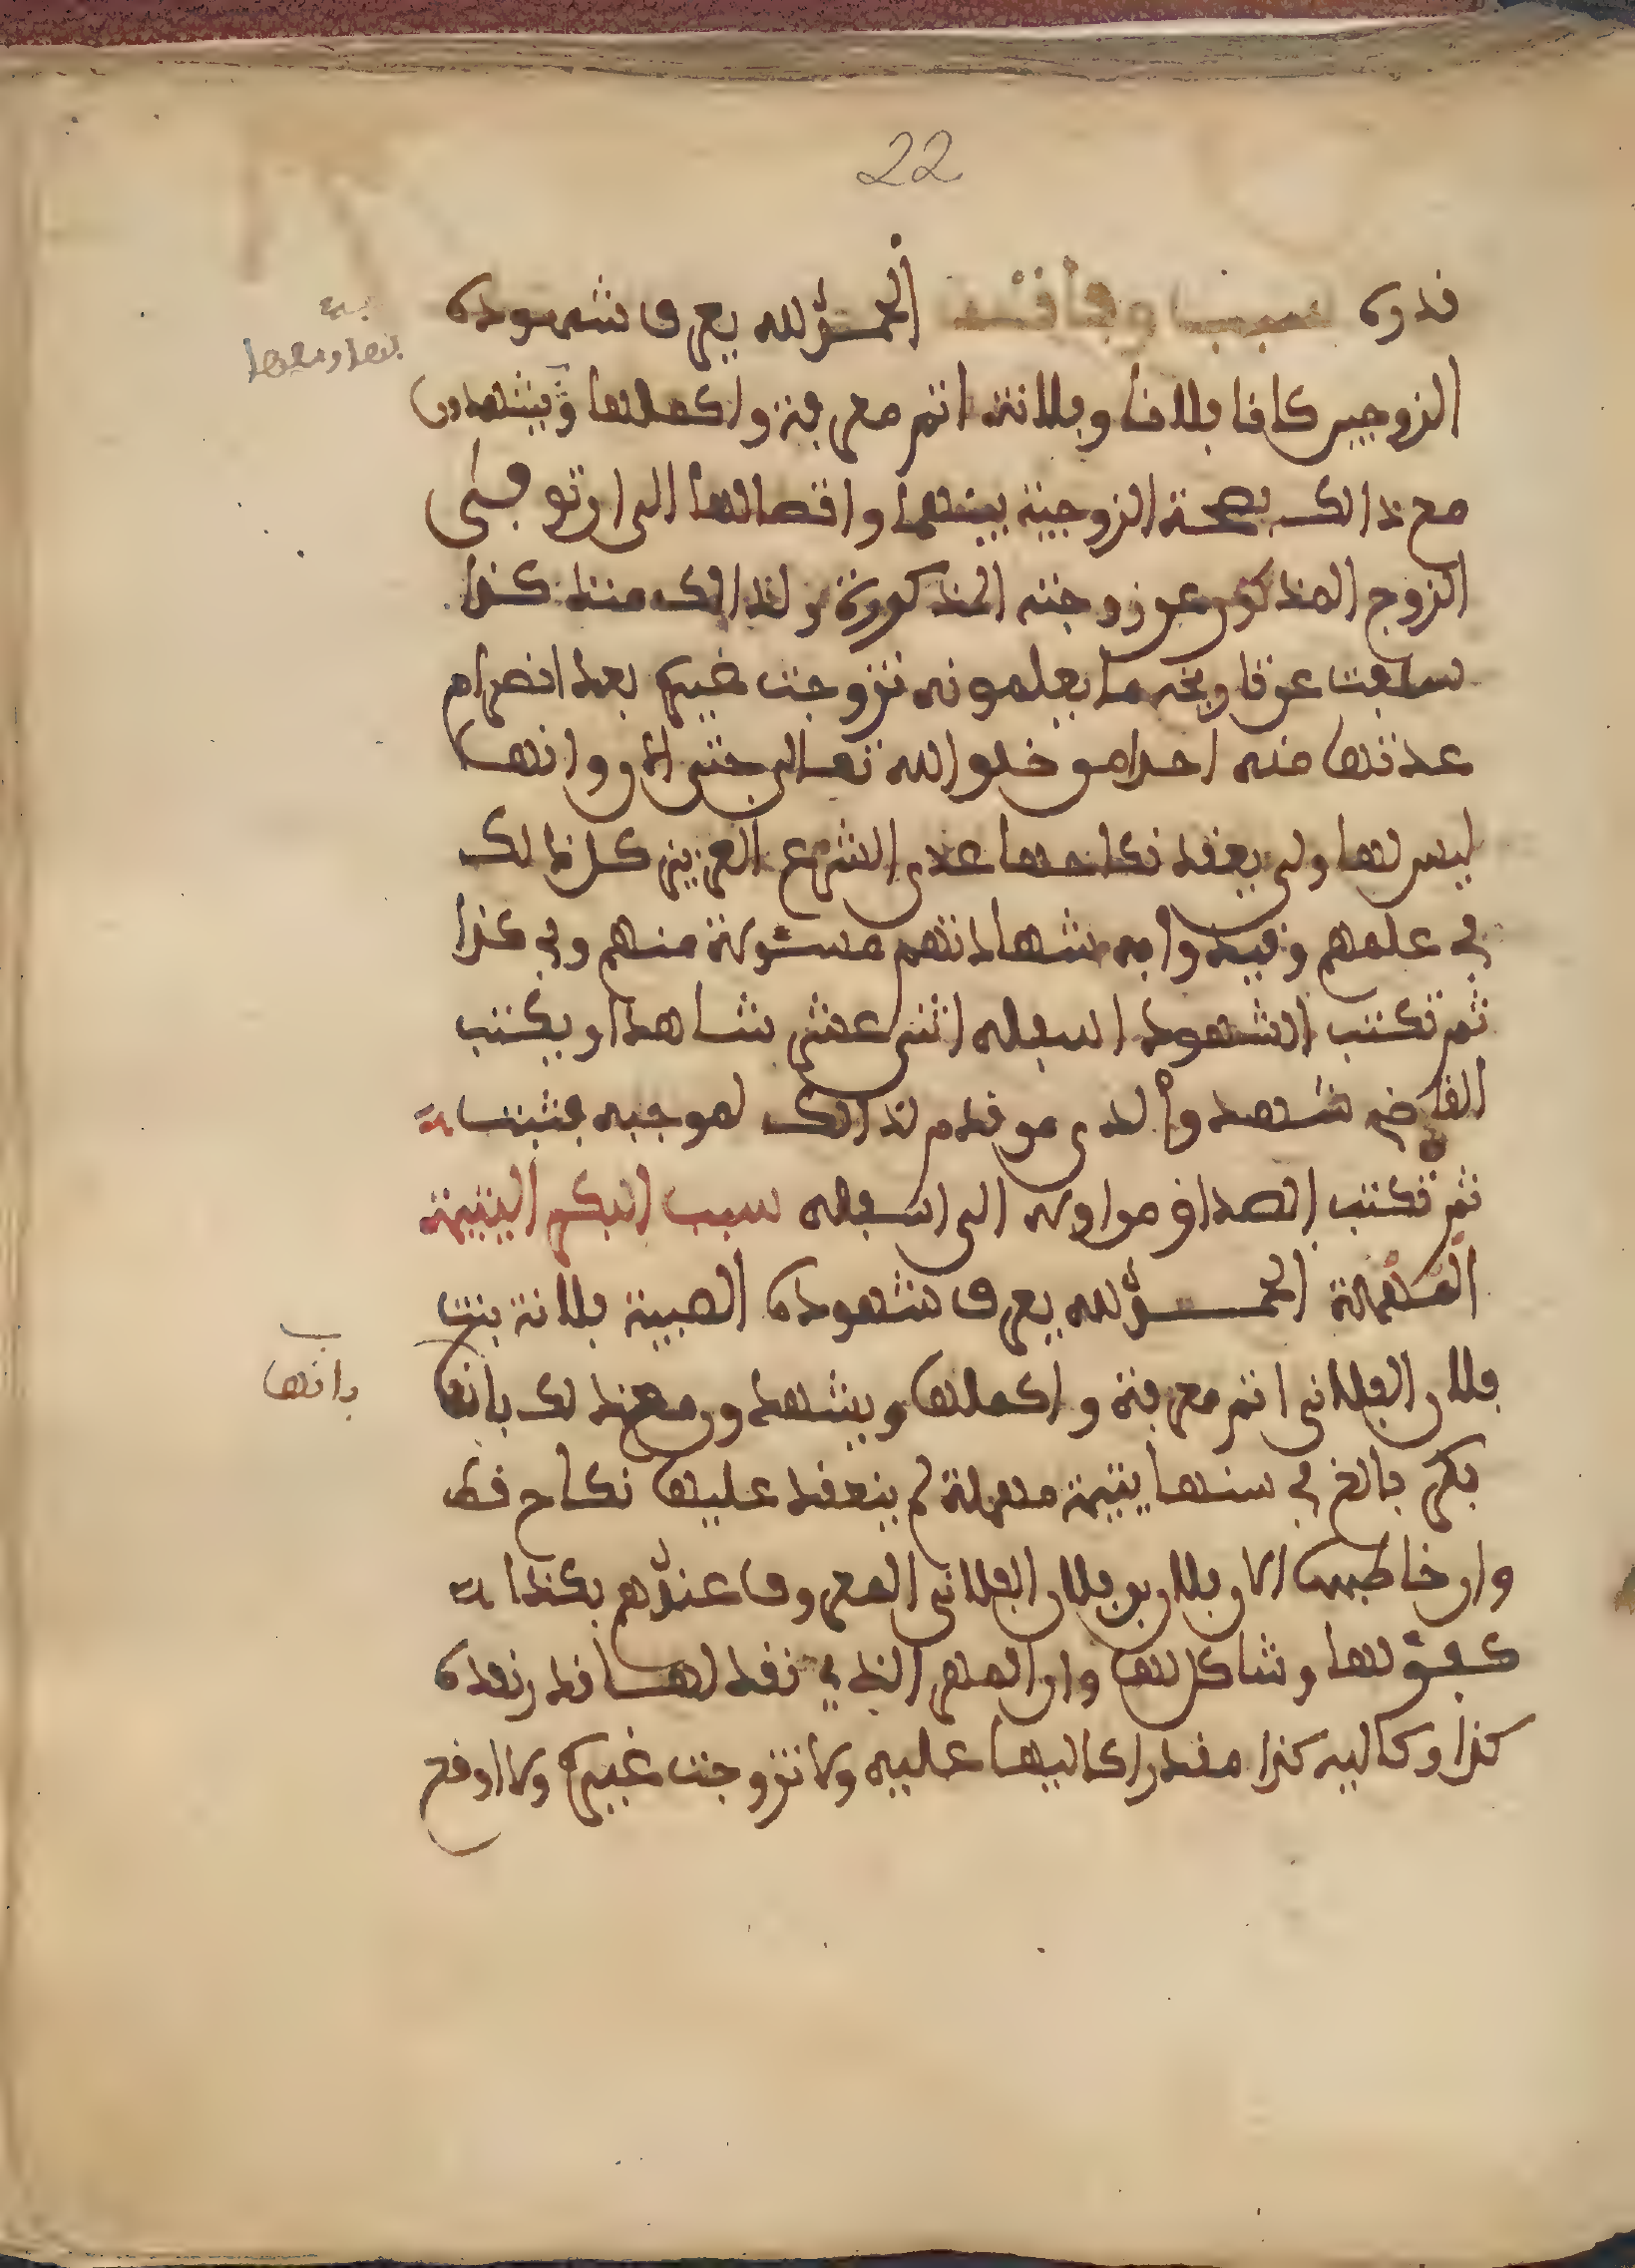 22
قدره سبب وفاتنـ الحمد لله يعرف شهوده
الزوجين كانا فلانا وفلانة اتم معرفة واكملها ويشهدون
بينهما ومعهما
مع ذالك بصحة الزوجية بينهما واتصالها الى ان توفى
الزوج المذكور عن زوجته المذكورة ولذالك منذ كذا
سلفت عن تاريخه ما يعلمونه تزوجت غيره بعد انصرام
عدتها منه احدا من خلق الله تعالى حتى الان وانها
ليس لها ولي يعقد نكاحها عدى الشرع العزيز كل ذالك
في علمهم وقيدوا به شهادتهم مسئولة منهم وفي كذا
ثم تكتب الشهود اسفله اثنى عشر شاهدا ويكتب
القاضي شهدوا لدى من قدم لذالك لموجبه فثبت
ثم تكتب الصداق من اوله الى اسفله سبب البكر اليتيمة
المهملة الحمد لله يعرف شهوده الصبية فلانة بنت
فلان الفلاني اتم معرفة واكملها ويشهدون مع ذلك بانها
بانها
بكر بالغ في سنها يتيمة مهملة لم ينعقد عليها نكاح قط
وان خاطبها الان فلان بن فلان الفلاني المعروف عندهم بكذا
كفؤ لها وشاكل لها وان المهر الذي نقد لها قدر نقده
كذا وكاليه كذا مقدرا كاليها عليه ولا تزوجت غيره ولا اوقع